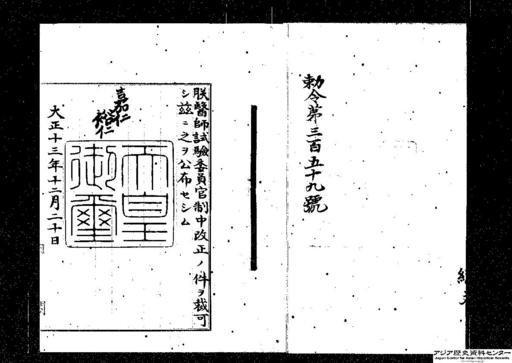 勅令第三百五十九號
朕醫師試驗委員官制中改正ノ件ヲ裁可
シ玆ニ之ヲ公布セシム
嘉仁
裕仁
天皇御璽
大正十三年十二月二十日
アジア歴史資料センター
Japan Center for Asian Historical Records